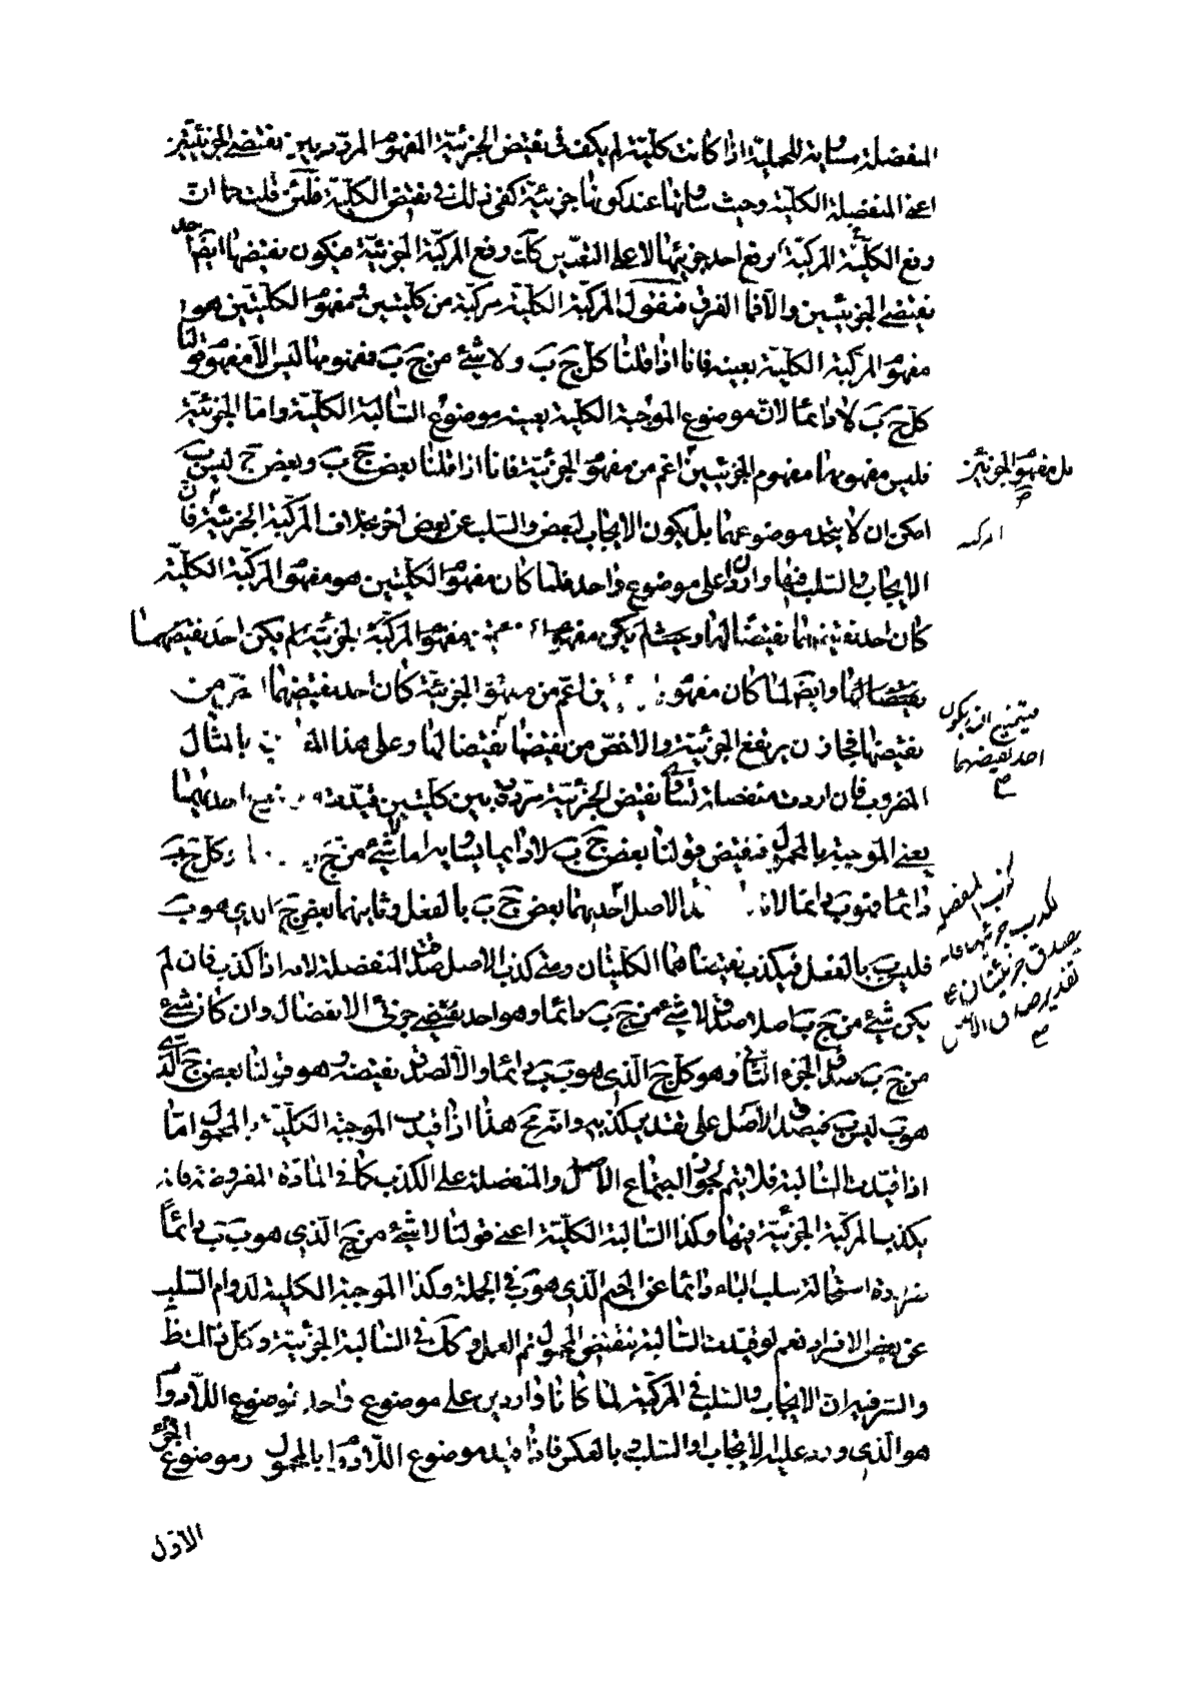 المنفصلة مساوية للحملية اذا كانت كلية لم يكف في نقيض الجزئية المفهوم المردد بين نقيضي الجزئيتين
اعني المنفصلة الكلية وحيث ساوتها عند كونها جزئية كفى ذلك في نقيض الكلية فلئن قلت كما ان
رفع الكلية المركبة برفع احد جزئيها لا على التعيين كذلك رفع المركبة الجزئية فيكون نقيضها ايضا احد
نقيضي الجزئيتين والا فما الفرق فنقول المركبة الكلية مركبة من كليتين ومفهوم الكليتين هو
مفهوم المركبة الكلية بعينه فانا اذا قلنا كل ج ب ولا شئ من ج ب فمفهومهما ليس الا مفهوم قولنا
كل ج ب لا دائما لان موضوع الموجبة الكلية بعينه موضوع السالبة الكلية واما الجزئية
فليس مفهومها مفهوم الجزئيتين اعم من مفهوم الجزئية فانا اذا قلنا بعض ج ب وبعض ج ليس ب
بل مفهوم الجزئيتين
امكن ان لا يتحد موضوعهما بل يكون الايجاب لبعض والسلب عن بعض اخر بخلاف المركبة الجزئية فان
الايجاب والسلب فيها واردان على موضوع واحد فلما كان مفهوم الكليتين هو مفهوم المركبة الكلية
كان احد نقيضيهما نقيضا لها وحيث لم يكن مفهوم مفهوم المركبة الجزئية لم يكن احد نقيضيهما
نقيضا لها وايضا لما كان مفهوم اعم من مفهوم الجزئية كان احد نقيضيهما من
نقيضها فجاز ان يرتفع الجزئية والاخص من نقيضها
فيمتنع ان يكون
احد نقيضيهما
نقيضا لها وعلى هذا بالمثال
المضروب فان اردت منفصلة تساوي نقيض الجزئية مرددة بين كليتين قيدت موضوع احديهما
يعني الموجبة بالمحمول فنقيض قولنا بعض ج ب لا دائما يساويه اما لا شئ من ج ب وكل ج ب
دائما فهو ب دائما لان الاصل احديهما بعض ج ب بالفعل وثانيهما بعض ج الذي هو ب
فليس ب بالفعل فيكذب نقيضاهما الكليتان ومتى كذب الاصل صدق المنفصلة لانه اذا كذب فان لم
كذب المنفصلة
لكذب جزئيها فانه
يصدق جزئيتان على
تقدير صدق الاصل
يكن شئ من ج ب اصلا صدق لا شئ من ج ب دائما وهو احد نقيضي جزئي الانفصال وان كان شئ
من ج ب صدق الجزء الثاني وهو كل ج الذي هو ب ب دائما والا لصدق نقيضه وهو قولنا بعض ج الذي
هو ب ليس ب فيصدق الاصل على تقدير كذبه وانما يصح هذا اذا قيدت الموجبة الكلية بالمحمول اما
اذا قيدت السالبة فلا يتم لجواز اجتماع الاصل والمنفصلة على الكذب كما في المادة المفروضة فانه
يكذب المركبة الجزئية فيها وكذا السالبة الكلية اعني قولنا لا شئ من ج الذي هو ب ب دائما
ضرورة استحالة سلب الباء دائما عن الجيم الذي هو ب في الجملة وكذا الموجبة الكلية لدوام السلب
عن بعض الافراد نعم لو قيدت السالبة بنقيض المحمول تم العمل وكذلك في السالبة الجزئية وكل ذلك ظ
والسر فيه ان الايجاب والسلب في المركبة لما كانا واردين على موضوع واحد فموضوع اللادوام
هو الذي ورد عليه الايجاب او السلب وبالعكس فاذا قيد موضوع اللادوام بالمحمول وموضوع الجزء
الاول